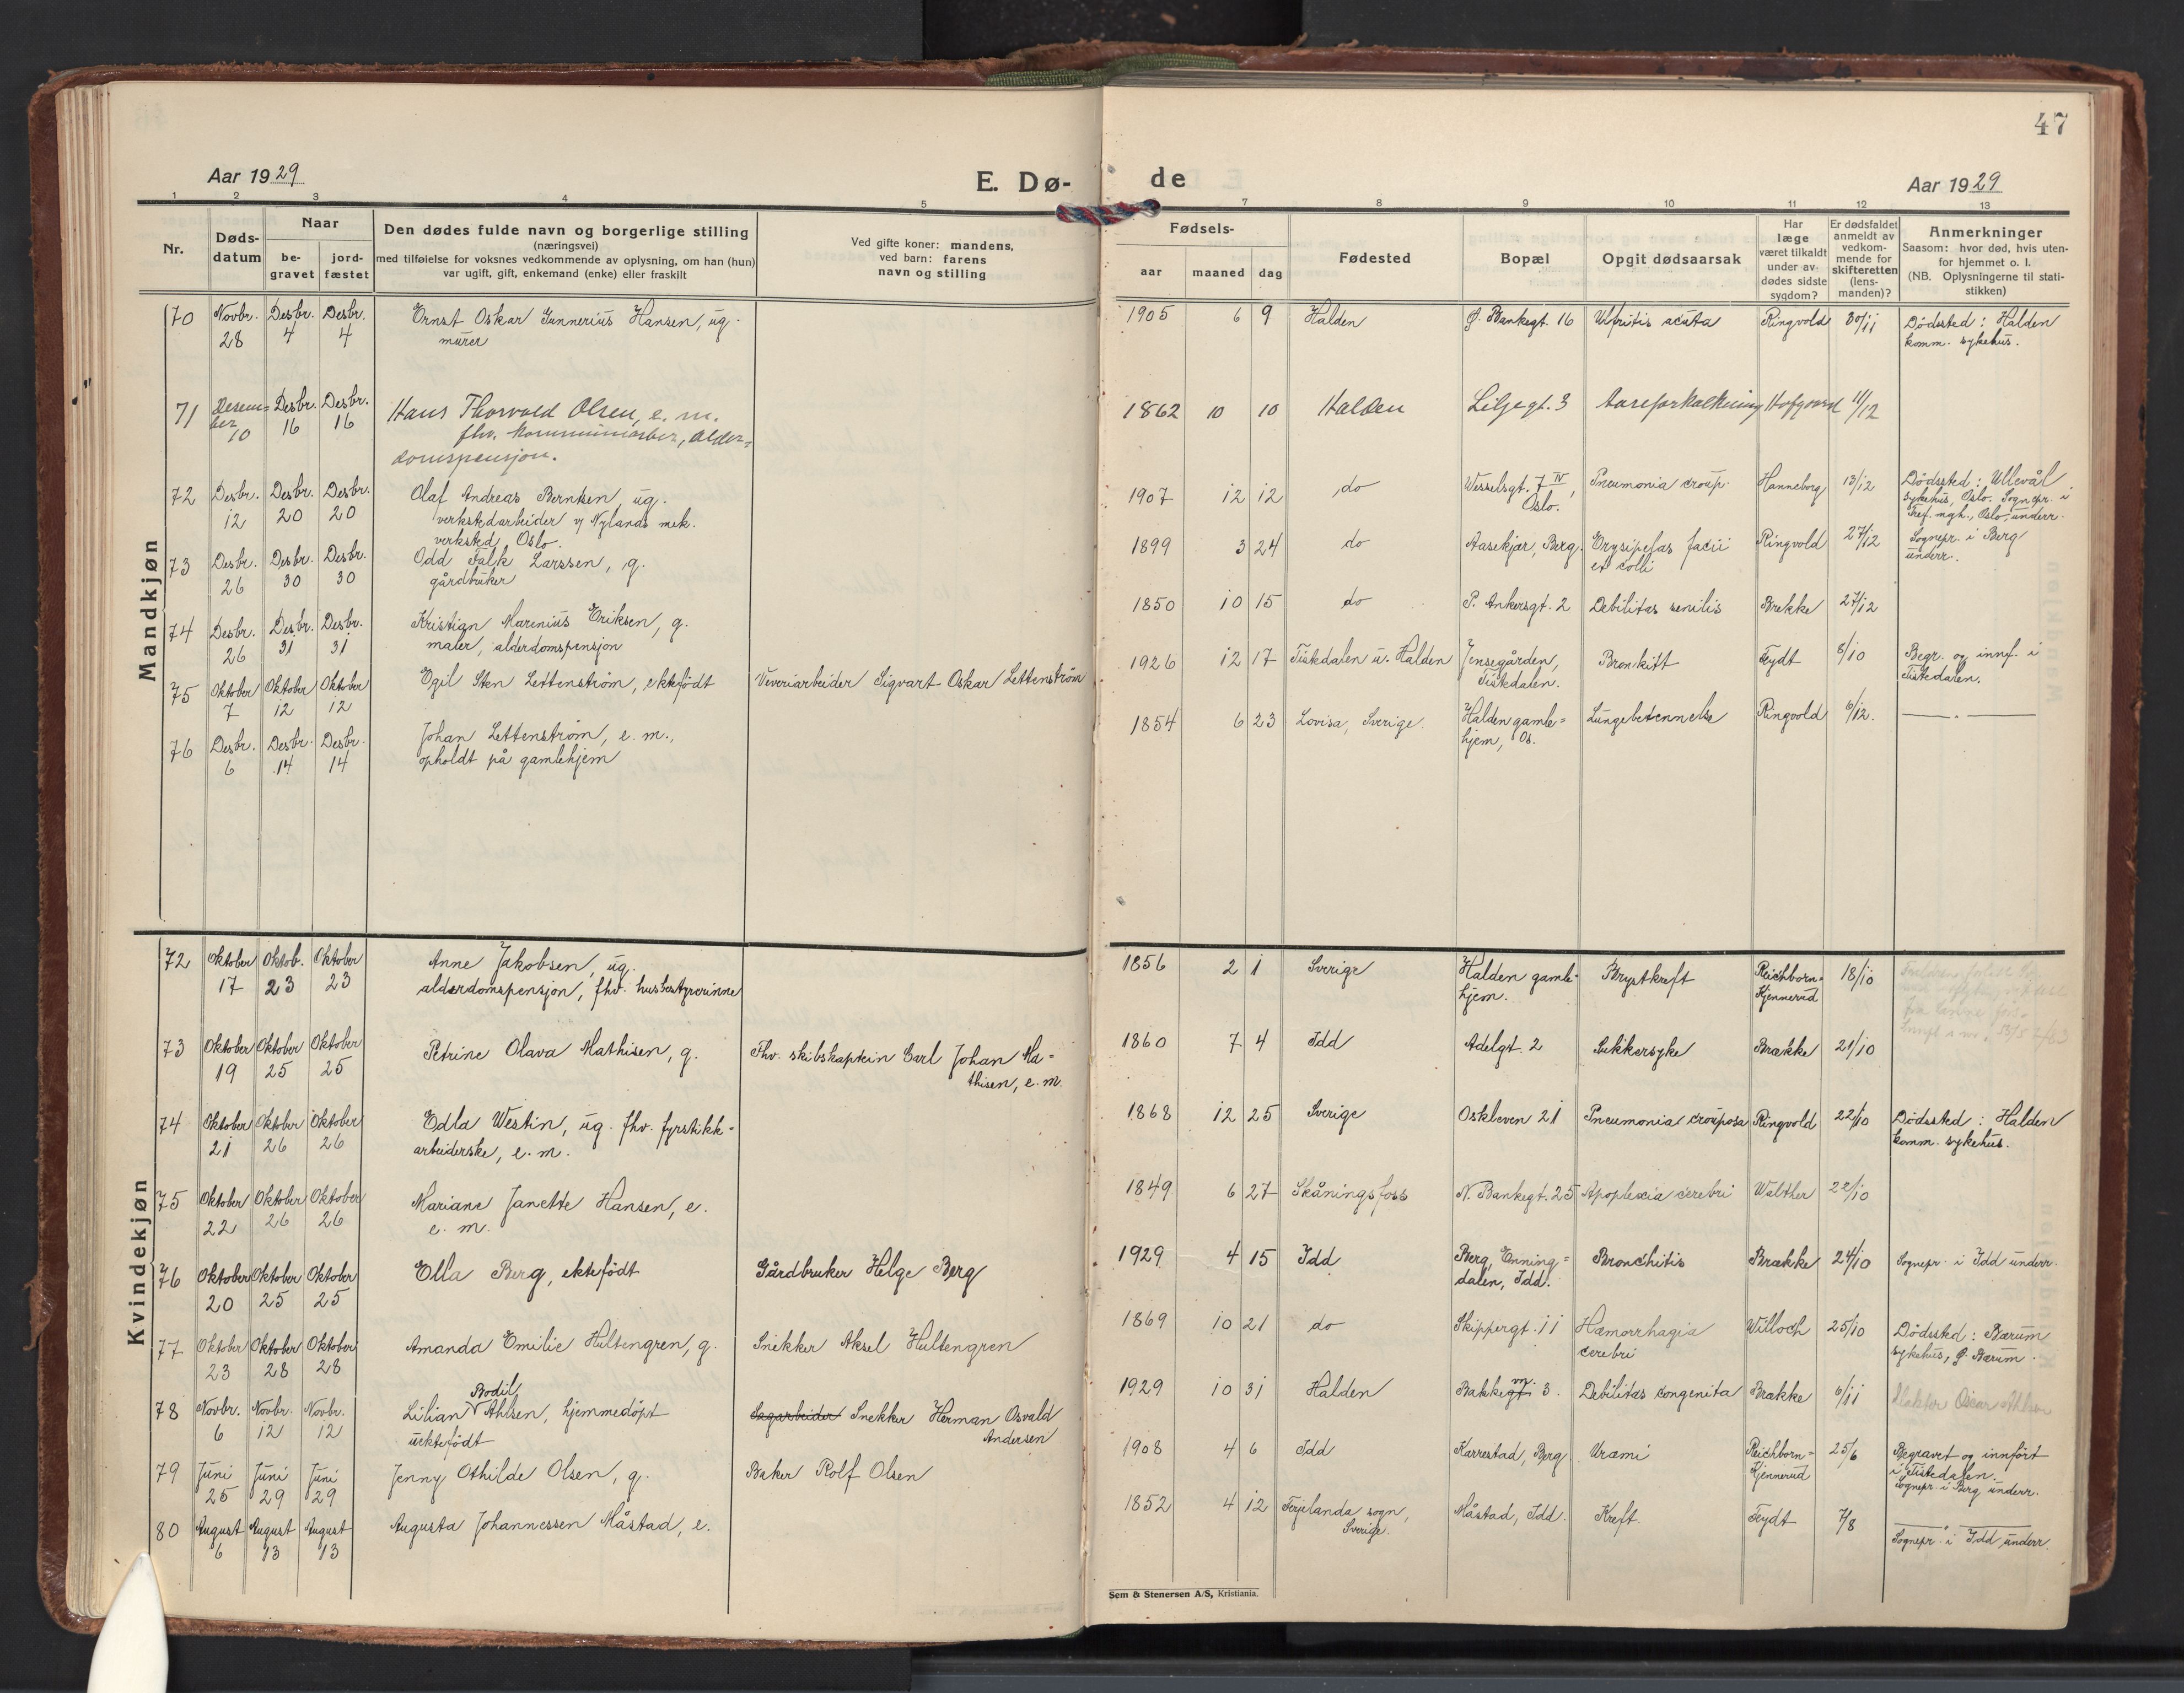 47
Aar 1929
E. Dø-
de
Aar 1929
1 2 3 4 5 7 8 9 10 11 12 13
Nr.
Døds-
datum
Naar
be-
gravet
jord-
fæstet
Den dødes fulde navn og borgerlige stilling
(næringsvei)
med tilføielse for voksnes vedkommende av oplysning, om han (hun)
var ugift, gift, enkemand (enke) eller fraskilt
Ved gifte koner: mandens,
ved barn: farens
navn og stilling
Fødsels-
aar maaned dag
Fødested
Bopæl
Opgit dødsaarsak
Har
læge
været tilkaldt
under av-
dødes sidste
sygdom?
Er dødsfaldet
anmeldt av
vedkom-
mende for
skifteretten
(lens-
manden)?
Anmerkninger
Saasom: hvor død, hvis uten-
for hjemmet o. l.
(NB. Oplysningerne til stati-
stikken)
Mandkjøn
70 Novbr. Desbr. Desbr. Ernst Oskar Gunnerius Hansen, ug. 1905 6 9 Halden Ø. Bankegt. 16 acuta Ringvold 30/11 Dödssted: Halden
28 4 4 murer komm. sykehus.
71 Desem- Desbr. Desbr. Hans Thorvald Olsen, e. m. 1862 10 10 Halden Liljegt. 3 Aareforkalkning Hofgaard 11/12
ber 10 16 16 fhv. kommunearber, alder-
domspensjon.
72 Desbr. Desbr. Desbr. Olaf Andreas Berntsen, ug. 1907 12 12 do Wesselsgt. 7 IV, Pneumonia croup. Hanneborg 13/12 Dödssted: Ullevål
12 20 20 verkstedarbeider v/ Nylands mek. Oslo. sykehus, Oslo. Sognepr. i
verksted, Oslo. Tref. mgh., Oslo, underr.
73 Desbr. Desbr. Desbr. Odd Falk Larssen, g. 1899 3 24 do Aasekjær, Berg Erysipelas facii Ringvold 27/12 Sognepr. i Berg
26 30 30 gårdbruker et colli underr.
74 Desbr. Desbr. Desbr. Kristian Marenius Eriksen, g. 1850 10 15 do P. Ankersgt. 2 Debilitas senilis Brekke 27/12
26 31 31 maler, alderdomspensjon
75 Oktober Oktober Oktober Egil Sten Lettenström, ektefödt Veveriarbeider Sigvart Oskar Lettenström 1926 12 17 Tistedalen u. Halden Jensegården, Bronkitt Feydt 8/10 Begr. og innf. i
7 12 12 Tistedalen. Tistedalen.
76 Desbr. Desbr. Desbr. Johan Lettenström, e. m., 1854 6 23 Lovisa, Sverige. Halden gamle= Lungebetennelse Ringvold 6/12. — . —
6 14 14 opholdt på gamlehjem hjem, Os.
Kvindekjøn
72 Oktober Oktob. Oktober Anne Jakobsen, ug. 1856 2 1 Sverige Halden gamle- Brystkreft Reichborn- 18/10
17 23 23 alderdomspensjon, fhv. husbestyrerinne hjem. Kjennerud
73 Oktober Oktober Oktober Petrine Olava Mathisen, g. Fhv. skibskaptein Carl Johan Ma- 1860 7 4 Idd Adelgt. 2 Sukkersyke Brække 21/10
19 25 25 thisen, e. m.
74 Oktober Oktober Oktober Edla Westin, ug. fhv. fyrstikk- 1868 12 25 Sverige Oskleven 21 Pneumonia crouposa Ringvold 22/10 Dödssted: Halden
21 26 26 arbeiderske, e. m. komm. sykehus.
75 Oktober Oktober Oktober Mariane Janette Hansen, e. 1849 6 27 Skåningsfoss N. Bankegt. 25 Apoplexia cerebri Walther 22/10
22 26 26 e. m.
76 Oktober Oktober Oktober Ella Berg, ektefödt Gårdbruker Helge Berg 1929 4 15 Idd Berg, Enning- Bronchitis Brække 24/10 Sognepr. i Idd underr.
20 25 25 dalen, Idd.
77 Oktober Oktober Oktober Amanda Emilie Hultengren, g. Snekker Aksel Hultengren 1869 10 21 do Skippergt. 11 Hæmorrhagia Willoch 25/10 Dödssted: Bærum
23 28 28 cerebri sykehus, Ø. Bærum.
78 Novbr. Novbr. Novbr. Lilian Bodil Ahlsen, hjemmedöpt Sagarbeider Snekker Herman Osvald 1929 10 31 Halden 3. Debilitas congenita Brække 6/11
6 12 12 uektefödt Andersen
79 Juni Juni Juni Jenny Othilde Olsen, g. Baker Rolf Olsen 1908 4 6 Idd Karrestad, Berg Uræmi Reichborn- 25/6 Begravet og innfört
25 29 29 Kjennerud i Tistedalen.
Sognepr. i Berg underr.
80 August August August Augusta Johannessen Måstad, e. 1852 4 12 Ferjelanda sogn, Måstad, Idd. Kreft. Feydt 7/8 — " —
6 13 13 Sverige. Sognepr. i Idd underr.
Sem & Stenersen A/S, Kristiania.